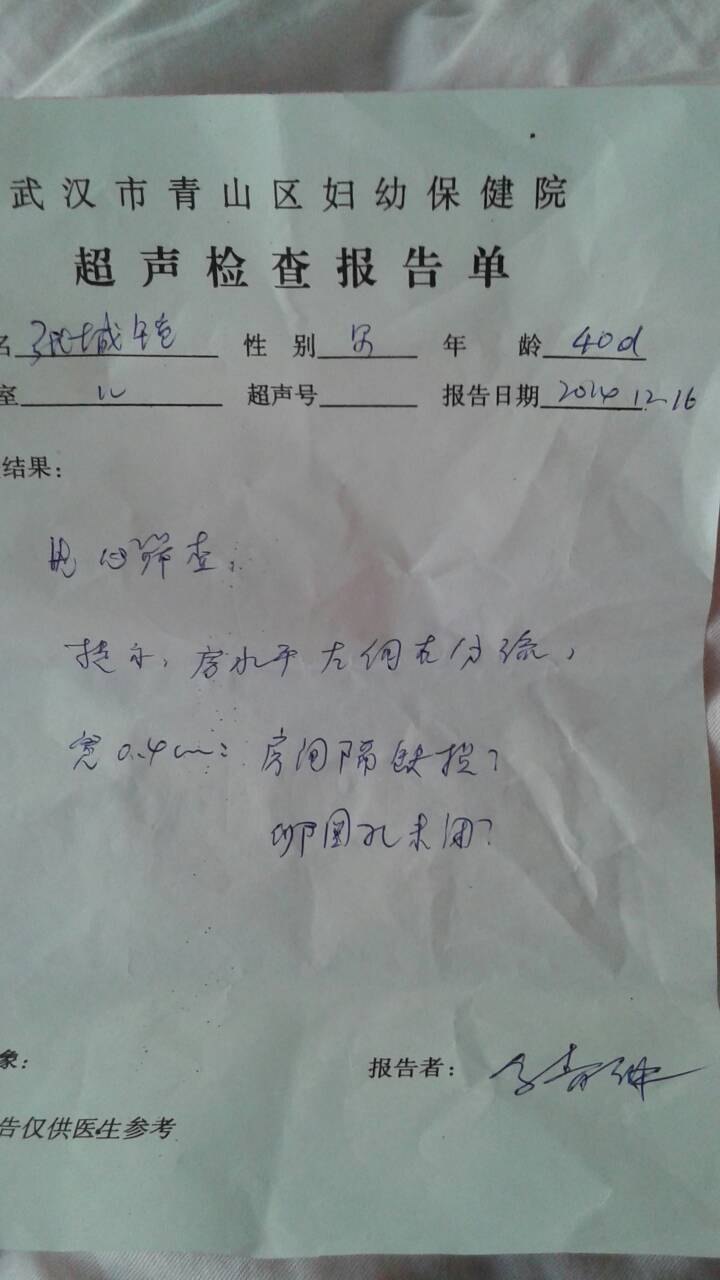 武汉市青山区妇幼保健院
超声检查报告单
名 性 别 男 年 龄 40d
室 儿 超声号 报告日期 2014.12.16
结果:
心筛查:
提示: 房水平左向右分流,
宽0.4cm: 房间隔缺损?
卵圆孔未闭?
象:
报告者:
告仅供医生参考